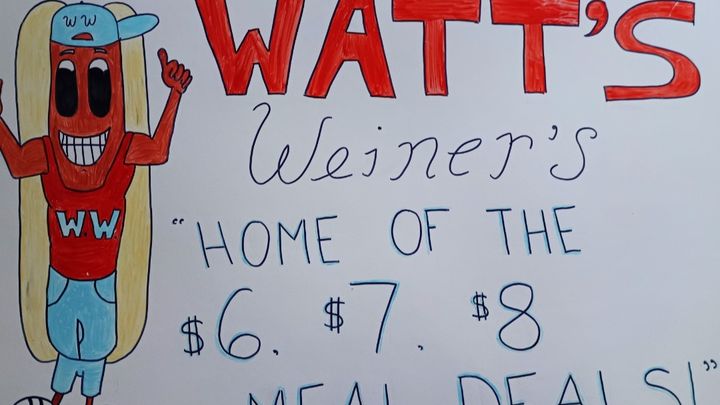 WW
WATT'S
Weiner's
WW
"HOME OF THE
$6. $7. $8
MEAL DEALS!"